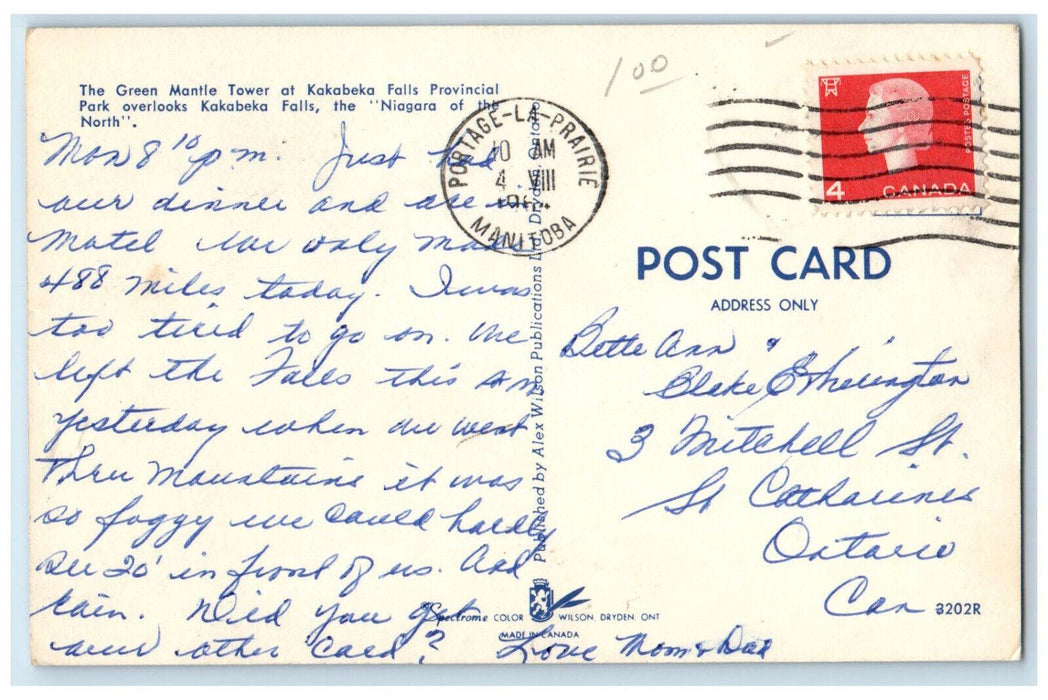 The Green Mantle Tower at Kakabeka Falls Provincial
Park overlooks Kakabeka Falls, the "Niagara of the
North".
Mon 8 10 pm. Just had
our dinner and are
Motel We only made
488 miles today. I was
too tired to go on. We
left the Falls this Am
yesterday when we went
Thru Mountains it was
so foggy we could hardly
see 20' in front of us. And
rain. Did you get
our other Card?
Love Mom & Dad
Published by Alex Wilson Publications Ltd., Dryden, Ontario
Spectrome COLOR WILSON, DRYDEN, ONT
MADE IN CANADA
1 00
PORTAGE-LA-PRAIRIE
10 AM
4 VIII
MANITOBA
POSTES POSTAGE
4 CANADA
POST CARD
ADDRESS ONLY
Bette Ann &
Blake Etherington
3 Mitchell St.
St Catharines
Ontario
Can
3202R